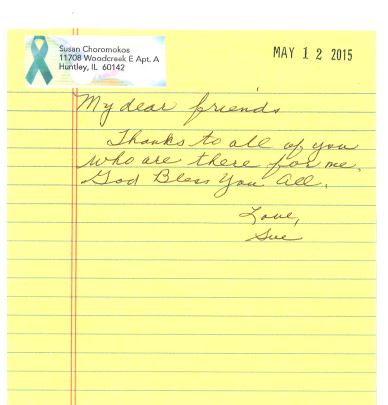 Susan Choromokos
11708 Woodcreek E Apt. A
Huntley, IL 60142
MAY 12 2015
My dear friends
Thanks to all of you
who are there for me.
God Bless You All.
Love,
Sue